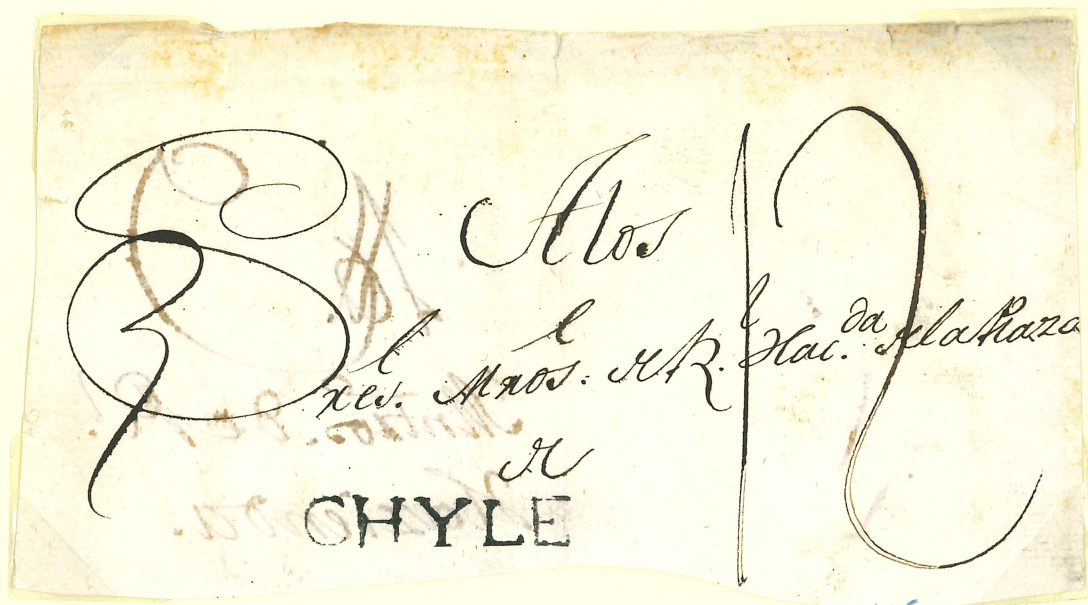 A los
Sres. Mros. de Rl. Hacda. de la Plaza
de
CHYLE
12